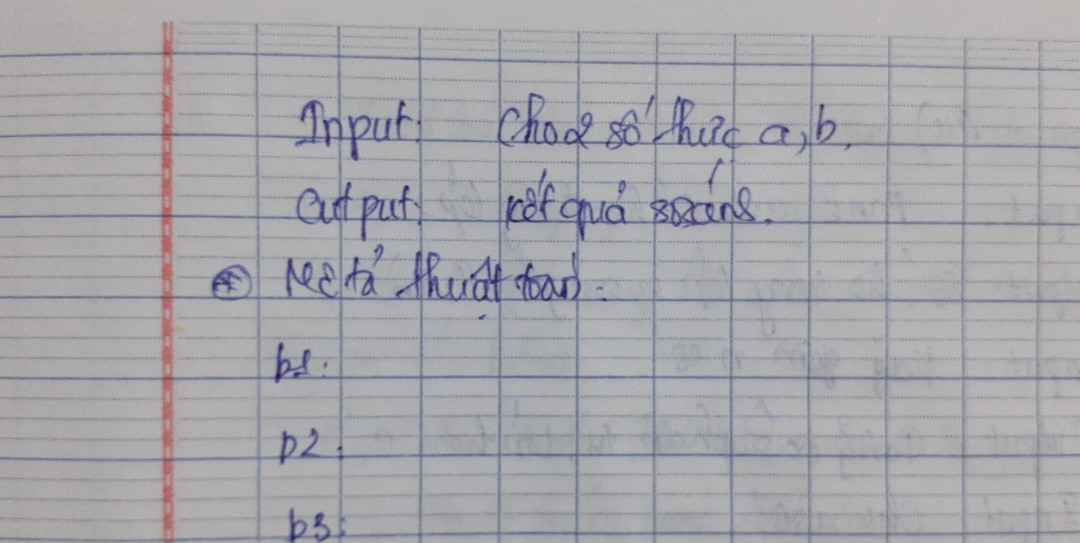 Input: Cho 2 số thực a, b.
Output: kết quả so sánh.
* Mô tả thuật toán:
b1:
b2:
b3: